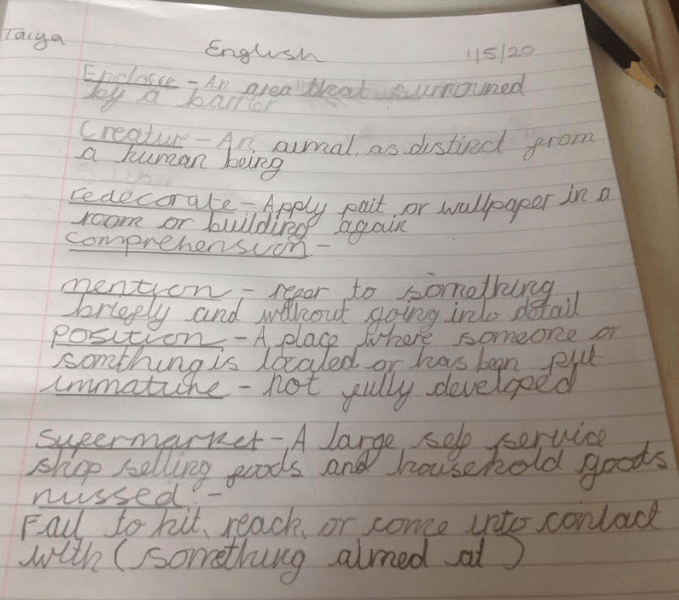 Taiya English 1/5/20
Enclosse - An area that surrouned
by a barrer
Creatur - An aimal, as distinct from
a human being
redecorate - Apply pait or wallpaper in a
room or building again
comprehension -
mention - refer to something
briefly and without going into detail
position - A place where someone or
somthing is located or has been put
immature - not fully developed
supermarket - A large self service
shop selling foods and household goods
missed -
Fail to hit, reach, or come into contact
with (something aimed at)